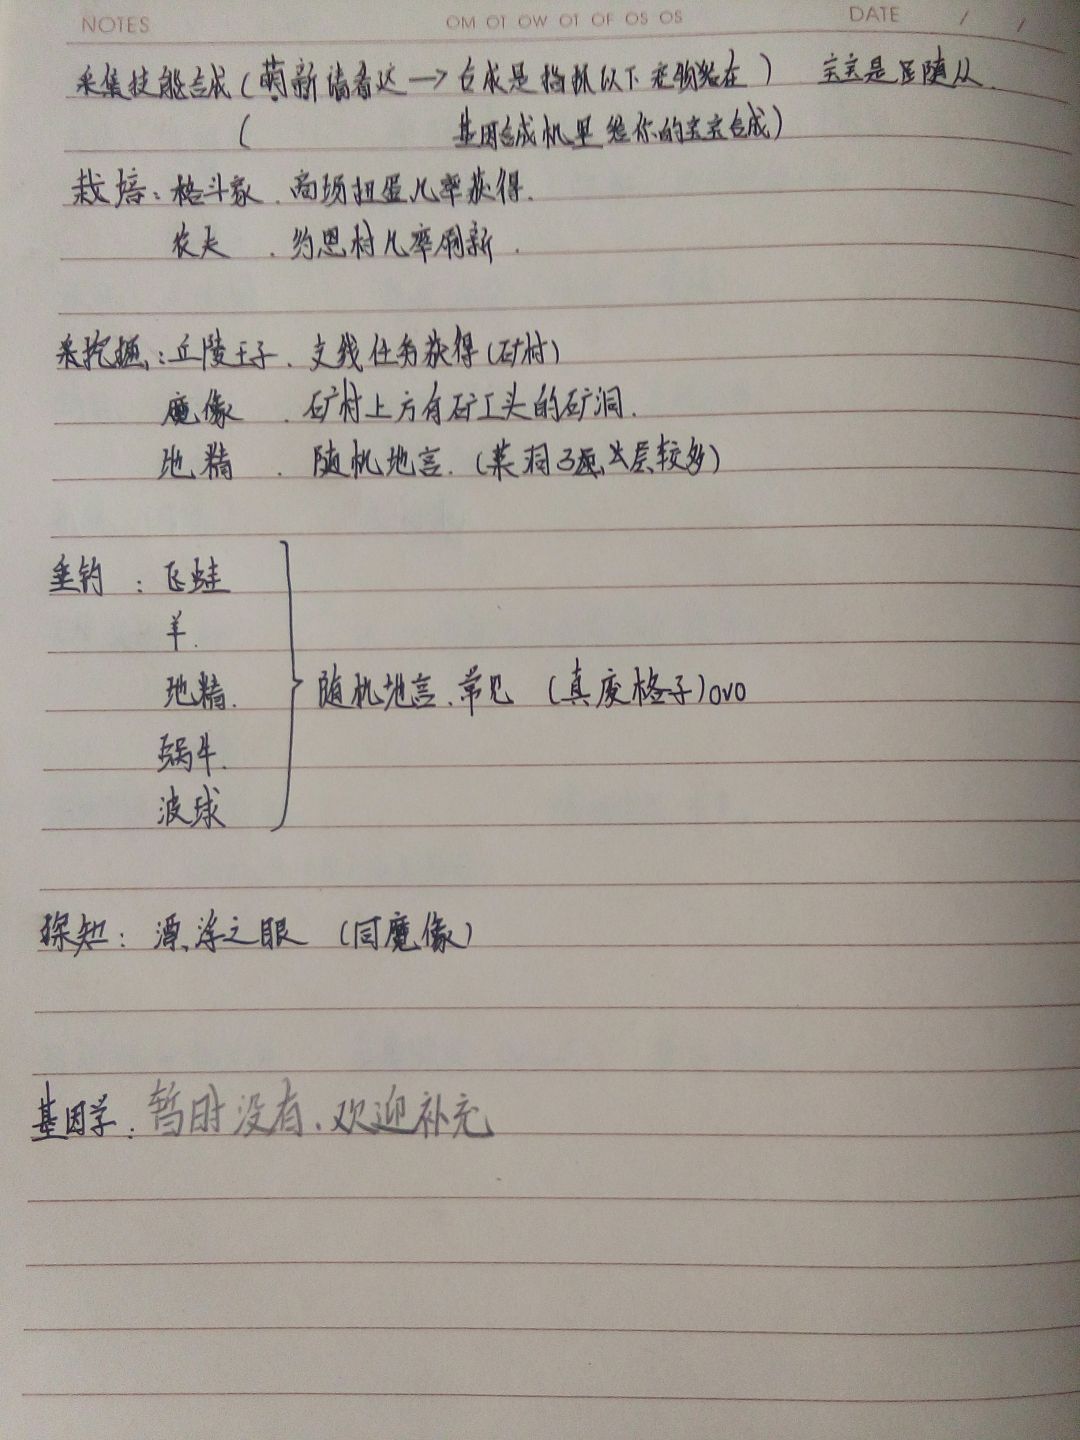 NOTES
OM OT OW OT OF OS OS
DATE / /
采集技能合成(萌新请看这→合成是指抓以下宠物然后在) 宝宝是跟随从
( 基因合成机里 给你的宝宝合成)
栽培:格斗家.高项扭蛋几率获得.
农夫.约恩村几率刷新.
采挖掘:丘陵王子.支线任务获得(矿村)
魔像.矿村上方有矿工头的矿洞.
地精.随机地宫.(菜洞 层较多)
垂钓:飞蛙
羊.
地精.
蜗牛.
波球
随机地宫.常见 (真废格子)ovo
探知:漂浮之眼 (同魔像)
基因学:暂时没有.欢迎补充